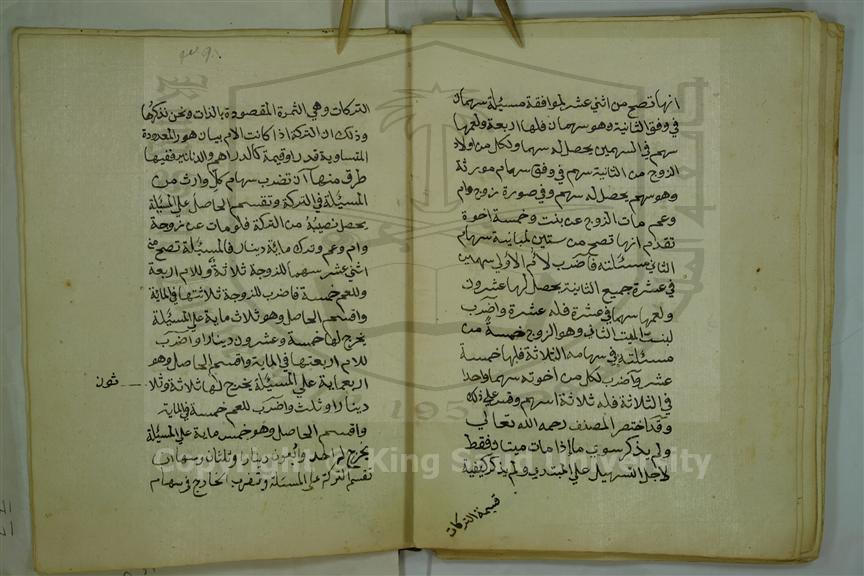 انها تصح من اثني عشر لموافقة مسئلة سهمان
في وفق الثانية وهو سهمان فلها اربعة ولعمها
سهم في السهمين يحصل له سهما ولكل من اولاد
الزوج من الثانية سهم في وفق سهام مورثة
وهو سهم يحصل له سهم وفي صورة زوج وام
وعم مات الزوج عن بنت وخمسة اخوة
تقدم انها تصح من ستين لمباينة سهام
الثاني مسئلته فاضرب لام الاولى سهمين
في عشرة جميع الثانية يحصل لها عشرون
ولعمها سهما في عشرة فله عشرة واضرب
لبنت الميت الثاني وهو الزوج خمسة من
مسئلته في سهامه الثلاثة فلها خمسة
عشر واضرب لكل من اخوته سهما واحدا
في الثلاثة فله ثلاثة اسهم وقس على ذلك
وقد اختصر المصنف رحمه الله تعالي
ولم يذكر سوي ما اذا مات ميتان فقط
لاجل التسهيل علي المبتدي ولم يذكر كيفية
قسمة التركات
التركات وهي الثمرة المقصودة بالذات ونحن نذكرها
وذلك ان التركة اذا كانت الام بيان هور المعدودة
المتساوية قدرا وقيمة كالدراهم والدنانير ففيها
طرق منها ان تضرب سهام كل وارث من
المسئلة في التركة وتقسم الحاصل علي المسئلة
يحصل نصيبه من التركة فلو مات عن زوجة
وام وعم وترك مائة دينار فالمسئلة تصح من
اثني عشر سهما للزوجة ثلاثة وللام اربعة
وللعم خمسة فاضرب للزوجة ثلاثتها في المائة
واقسم الحاصل وهو ثلاث ماية علي المسئلة
يخرج لها خمسة وعشرون دينارا واضرب
للام اربعتها في الماية واقسم الحاصل وهو
اربعماية علي المسئلة يخرج لها ثلاثة وثلا
ثون
دينارا وثلث واضرب للعم خمسة في الماية
واقسم الحاصل وهو خمس ماية علي المسئلة
يخرج له احد واربعون دينار وثلثان ومنها ان
تقسم التركة علي المسئلة وتضرب الخارج في سهام
Copyright © King Saud University
1957